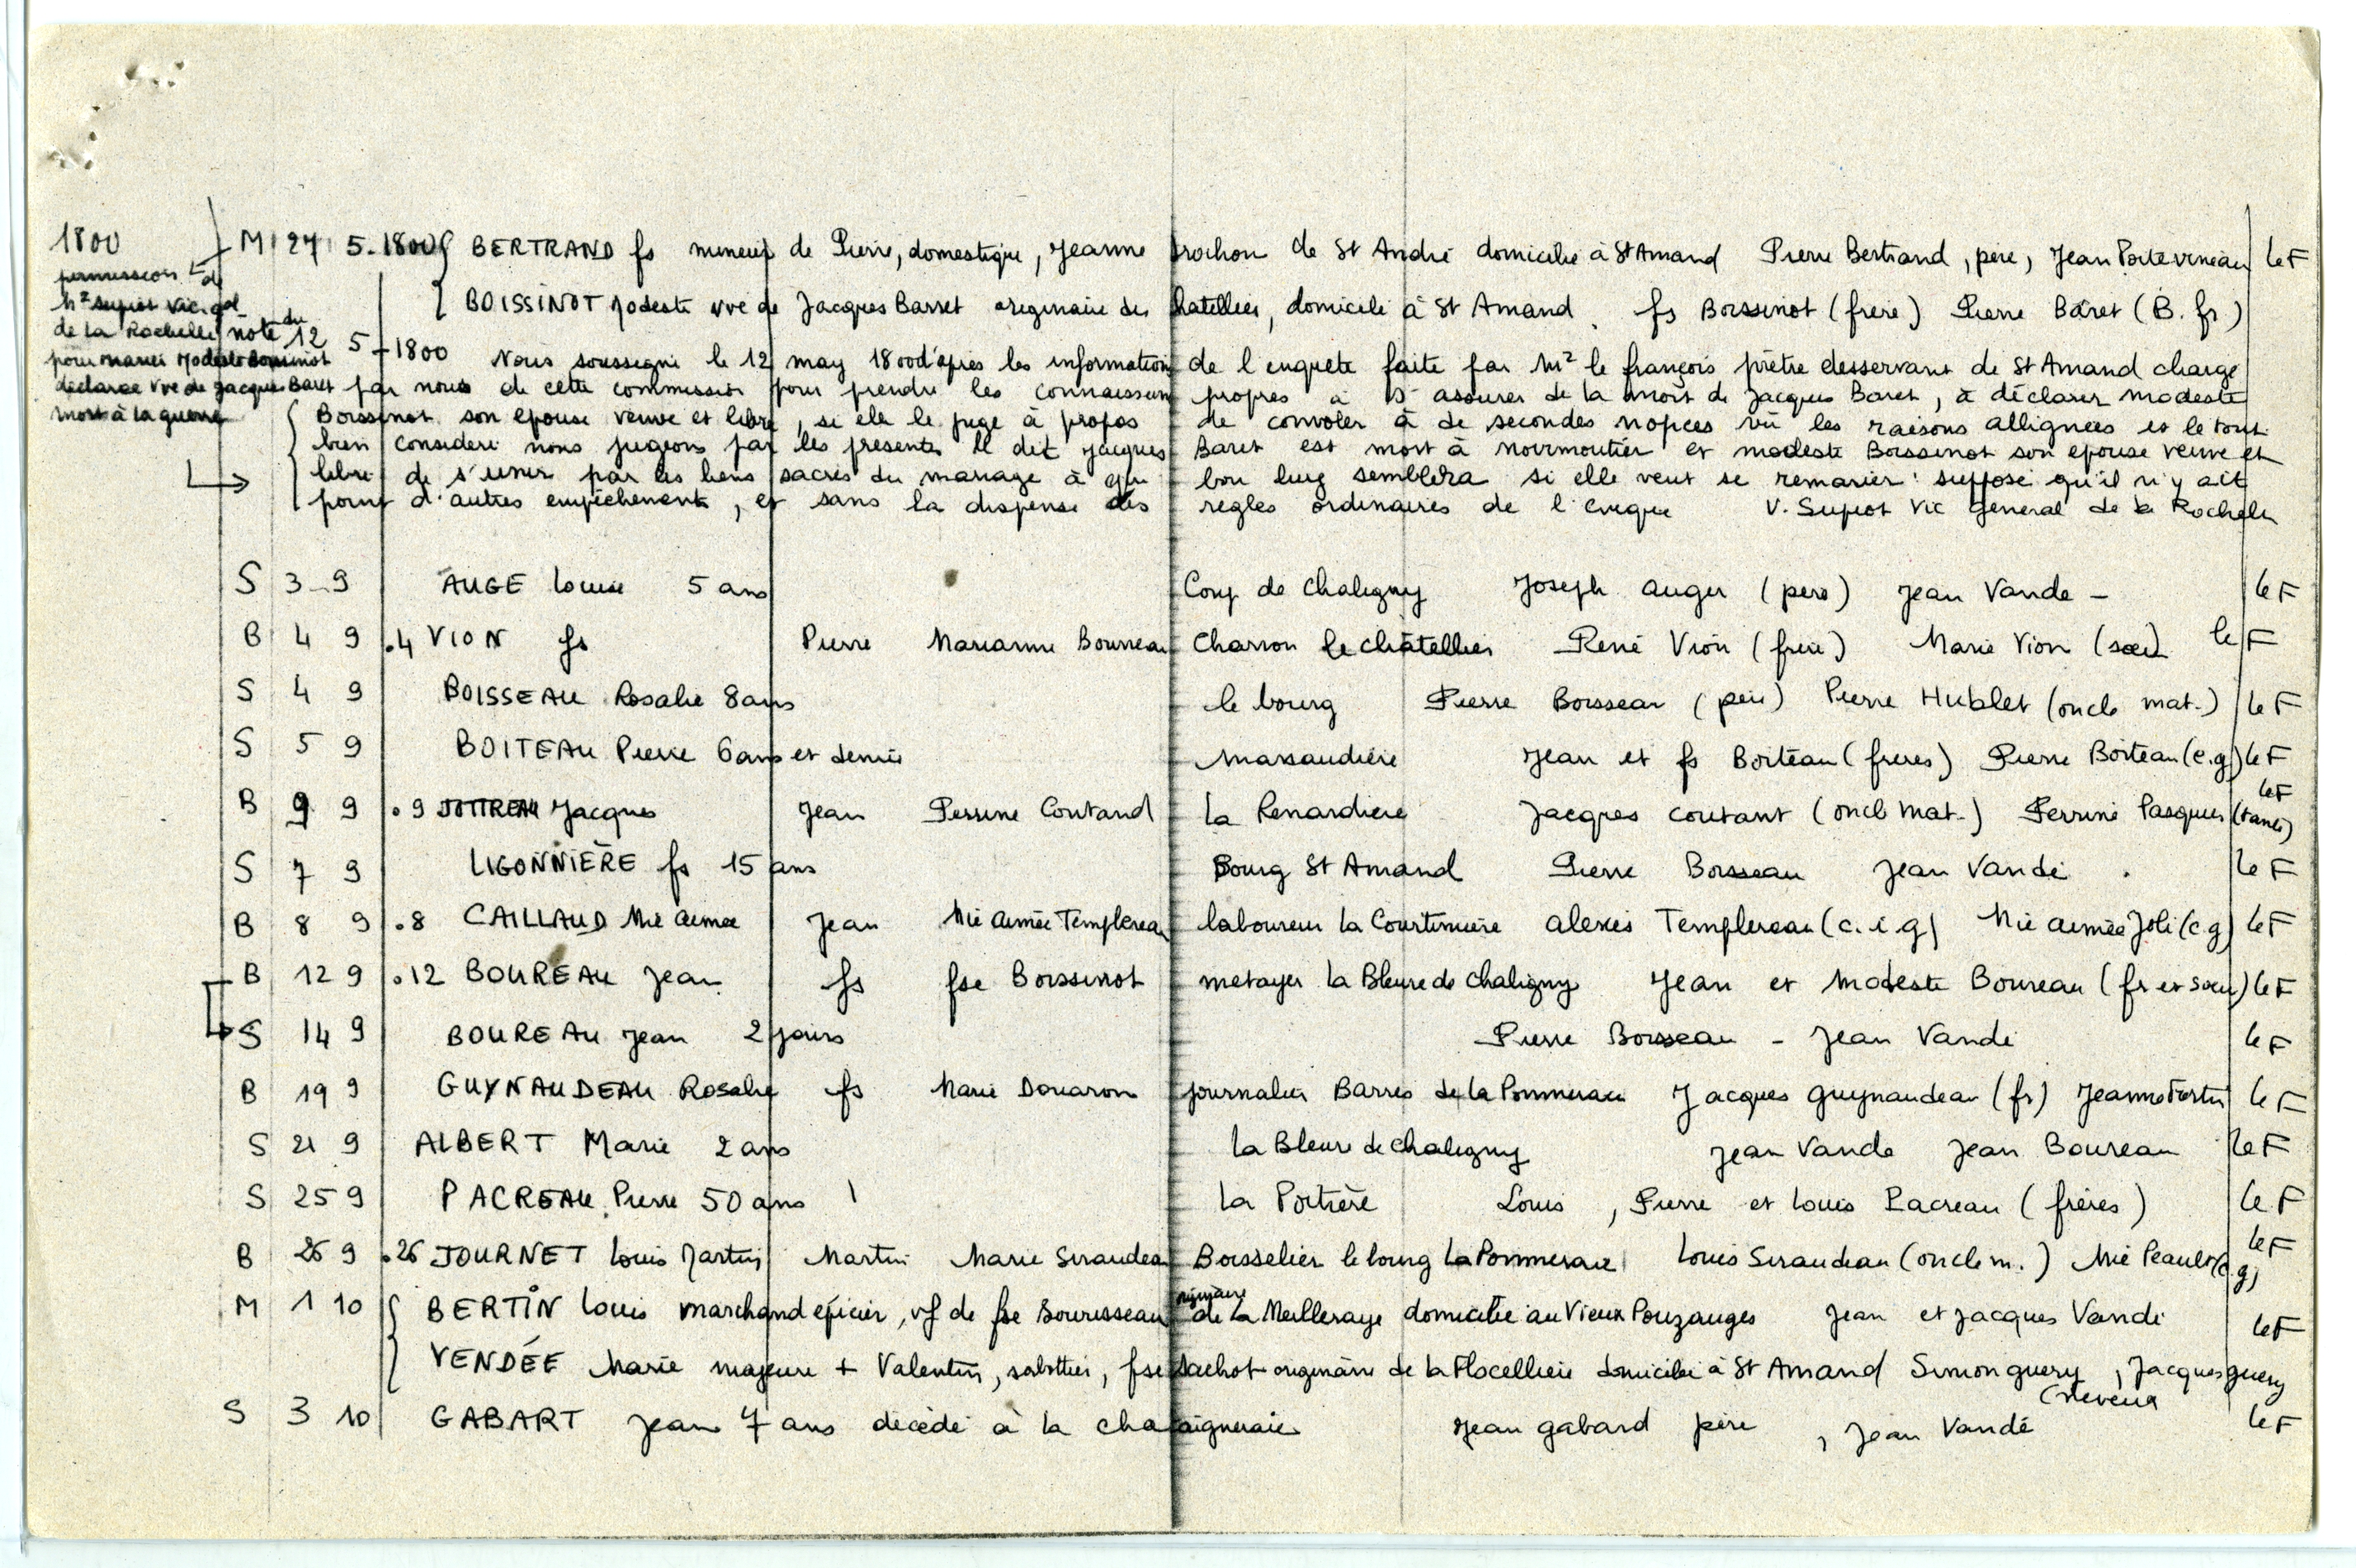 1800 M 27 5.1800 { BERTRAND fs mineur de Pierre, domestique, Jeanne Brochon de St André domicilié à St Amand Pierre Bertrand, père, Jean Poitevineau le F
permission de
Mr Supiot vic. gal
{ BOISSINOT Modeste vve de Jacques Barret originaire des Chatelliers, domicilié à St Amand. fs Boissinot (frère) Pierre Baret (B. fr)
de la Rochelle note du 12 5-1800 Nous soussigné le 12 may 1800 d'apres les informations de l enquete faite par Mr le françois prêtre desservant de St Amand chargé
pour marier Modeste Boissinot
déclarée vve de Jacques Baret par nous de cette commission pour prendre les connaissances propres à s'assurer de la mort de Jacques Baret, à déclarer modeste
mort à la guerre { Boissinot son epouse veuve et libre, si elle le juge à propos de convoler à de secondes nopces vû les raisons alliguées et le tout
bien considéré nous jugeons par les presentes le dit Jacques Baret est mort à noirmoutier et modeste Boissinot son epouse veuve et
libre de s'unir par les liens sacrés du mariage à qui bon luy semblera si elle veut se remarier : supposé qu'il n'y ait
point d'autres empêchements, et sans la dispense des regles ordinaires de l'eveque V. Supiot Vic general de la Rochelle
S 3-9 AUGE Louise 5 ans Coup de Chaligny Joseph Auger (père) Jean Vandé - le F
B 4 9 .4 VION fs Pierre Marianne Bourreau Charron le châtellier René Vion (frère) Marie Vion (soeur) le F
S 4 9 BOISSEAU Rosalie 8 ans le bourg Pierre Boisseau (père) Pierre Hublet (oncle mat.) le F
S 5 9 BOITEAU Pierre 6 ans et demie Marsaudière Jean et fs Boiteau (frères) Pierre Boiteau (c.g) le F
B 9 9 .9 JOTTREAU Jacques Jean Perrine Coutand la Renardière Jacques coutant (oncle mat.) Perrine Pasquier (tante) le F
S 7 9 LIGONNIÈRE fs 15 ans Bourg St Amand Pierre Boisseau Jean Vandé . le F
B 8 9 .8 CAILLAUD Mie Aimée Jean Mie Aimée Templereau laboureur la Courtinière Alexis Templereau (c.i.g) Mie Aimée Joli (c.g) le F
B 12 9 .12 BOUREAU Jean fs fse Boissinot métayer la Bleure de Chaligny Jean et Modeste Boureau (fr et soeur) le F
S 14 9 BOUREAU Jean 2 jours Pierre Boisseau - Jean Vandé le F
B 19 9 GUYNAUDEAU Rosalie fs Marie Douaron journalier Barres de la Pommeraie Jacques Guynaudeau (fr) Jeanne Fortin le F
S 21 9 ALBERT Marie 2 ans la Bleure de Chaligny Jean Vandé Jean Boureau le F
S 25 9 PACREAU Pierre 50 ans la Poitière Louis, Pierre et Louis Pacreau (frères) le F
B 26 9 .26 JOURNET Louis Martin Martin Marie Siraudeau Boisselier le bourg la Pommeraie Louis Siraudeau (oncle m.) Mie Peault (c.g) le F
M 1 10 { BERTIN Louis marchand épicier, vf de fse Bourisseau originaire de la Meilleraye domicilié au Vieux Pouzauges Jean et Jacques Vandé le F
VENDÉE Marie majeure + Valentin, sabottier, fse Sachot originaire de la Flocellière domicilié à St Amand Simon guery, Jacques guery
(neveux
S 3 10 GABART Jean 7 ans décédé à la chataigneraie Jean gabard père, Jean Vandé le F